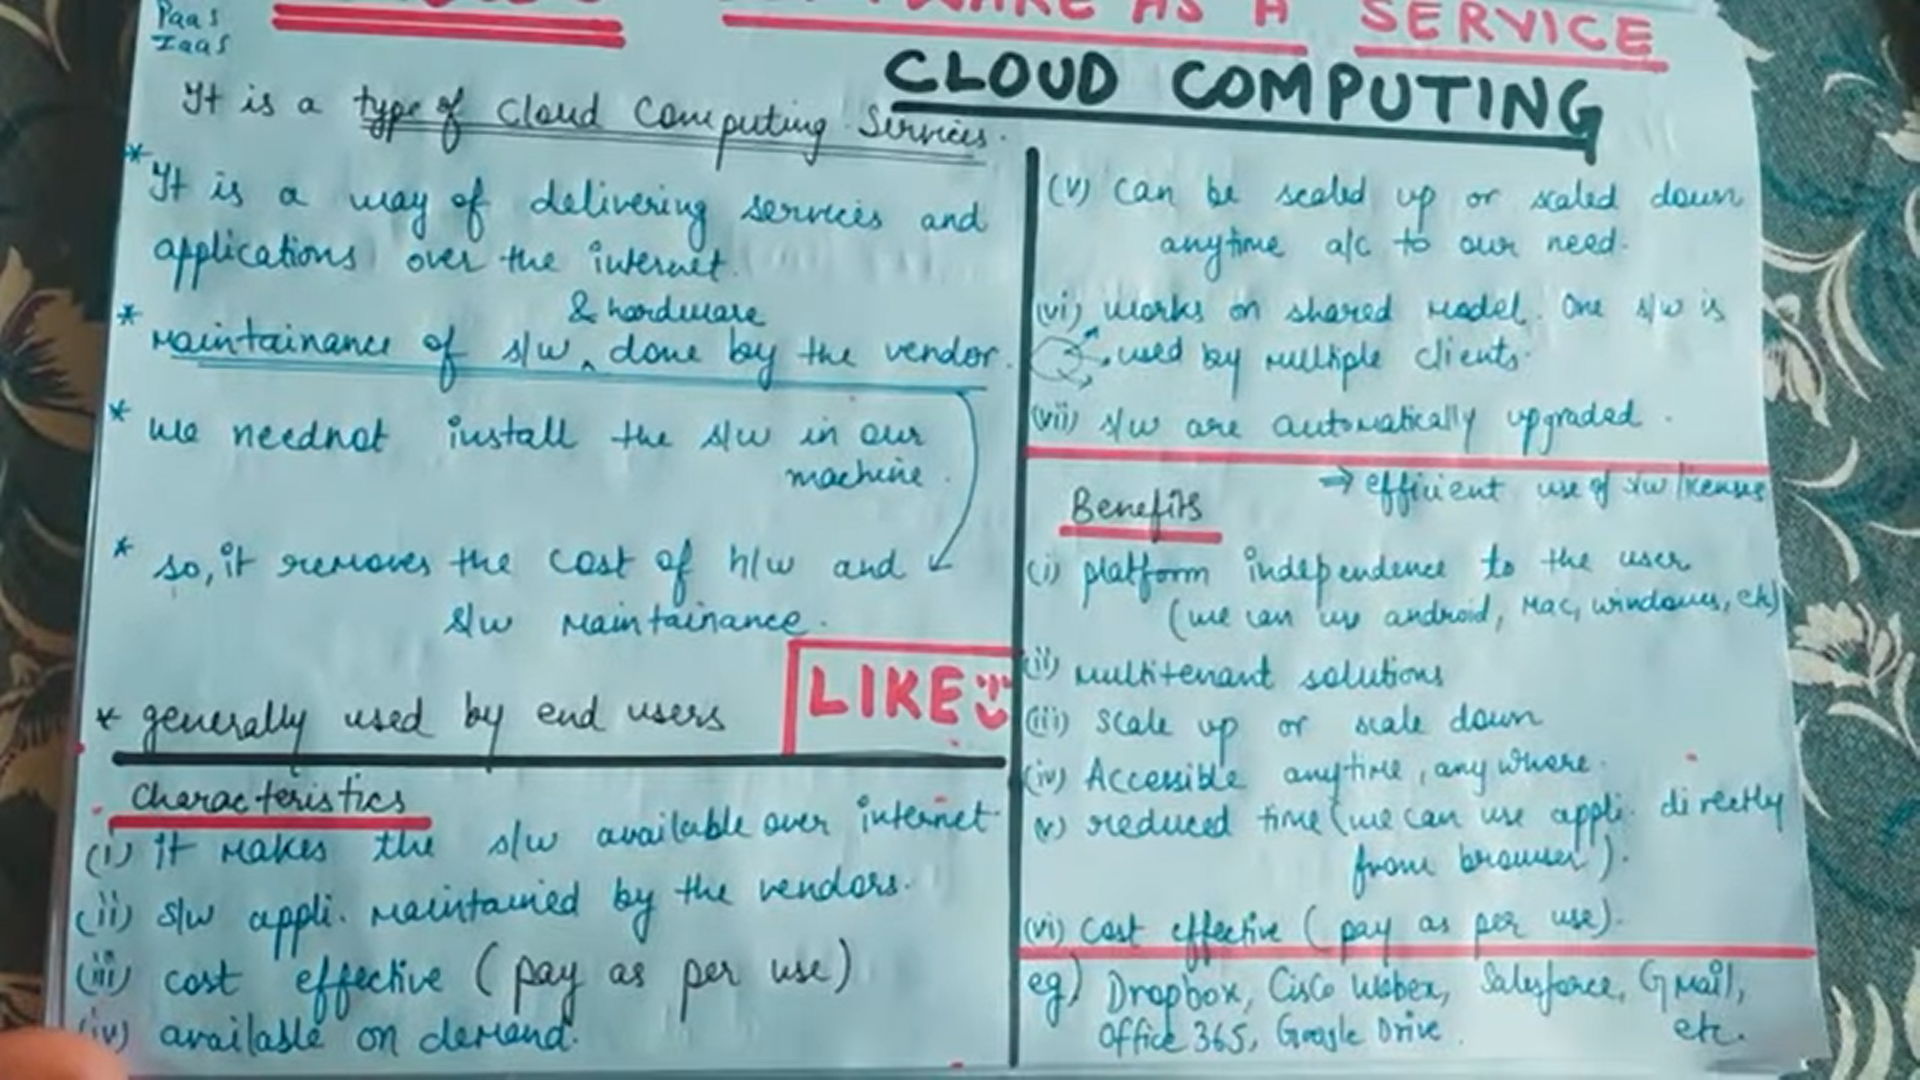 PaaS
IaaS
AS A SERVICE
CLOUD COMPUTING
It is a type of Cloud Computing Services.
* It is a way of delivering services and
applications over the internet.
& hardware
* Maintainance of s/w ^ done by the vendor.
* we neednot install the s/w in our
machine.
* so, it removes the cost of h/w and
s/w Maintainance.
* generally used by end users
LIKE
Characteristics
(i) it makes the s/w available over internet
(ii) s/w appli. maintained by the vendors.
(iii) cost effective (pay as per use)
(iv) available on demand.
(v) can be scaled up or scaled down
anytime a/c to our need.
(vi) works on shared model. One s/w is
used by multiple clients.
(vii) s/w are automatically upgraded.
Benefits
⇒ efficient use of s/w license
(i) platform independence to the user
(we can use android, Mac, windows, etc)
(ii) multitenant solutions
(iii) scale up or scale down
(iv) Accessible anytime, anywhere.
(v) reduced time (we can use appli. directly
from browser).
(vi) cost effective (pay as per use).
eg) Dropbox, Cisco Webex, Salesforce, GMail,
Office 365, Google Drive. etc.